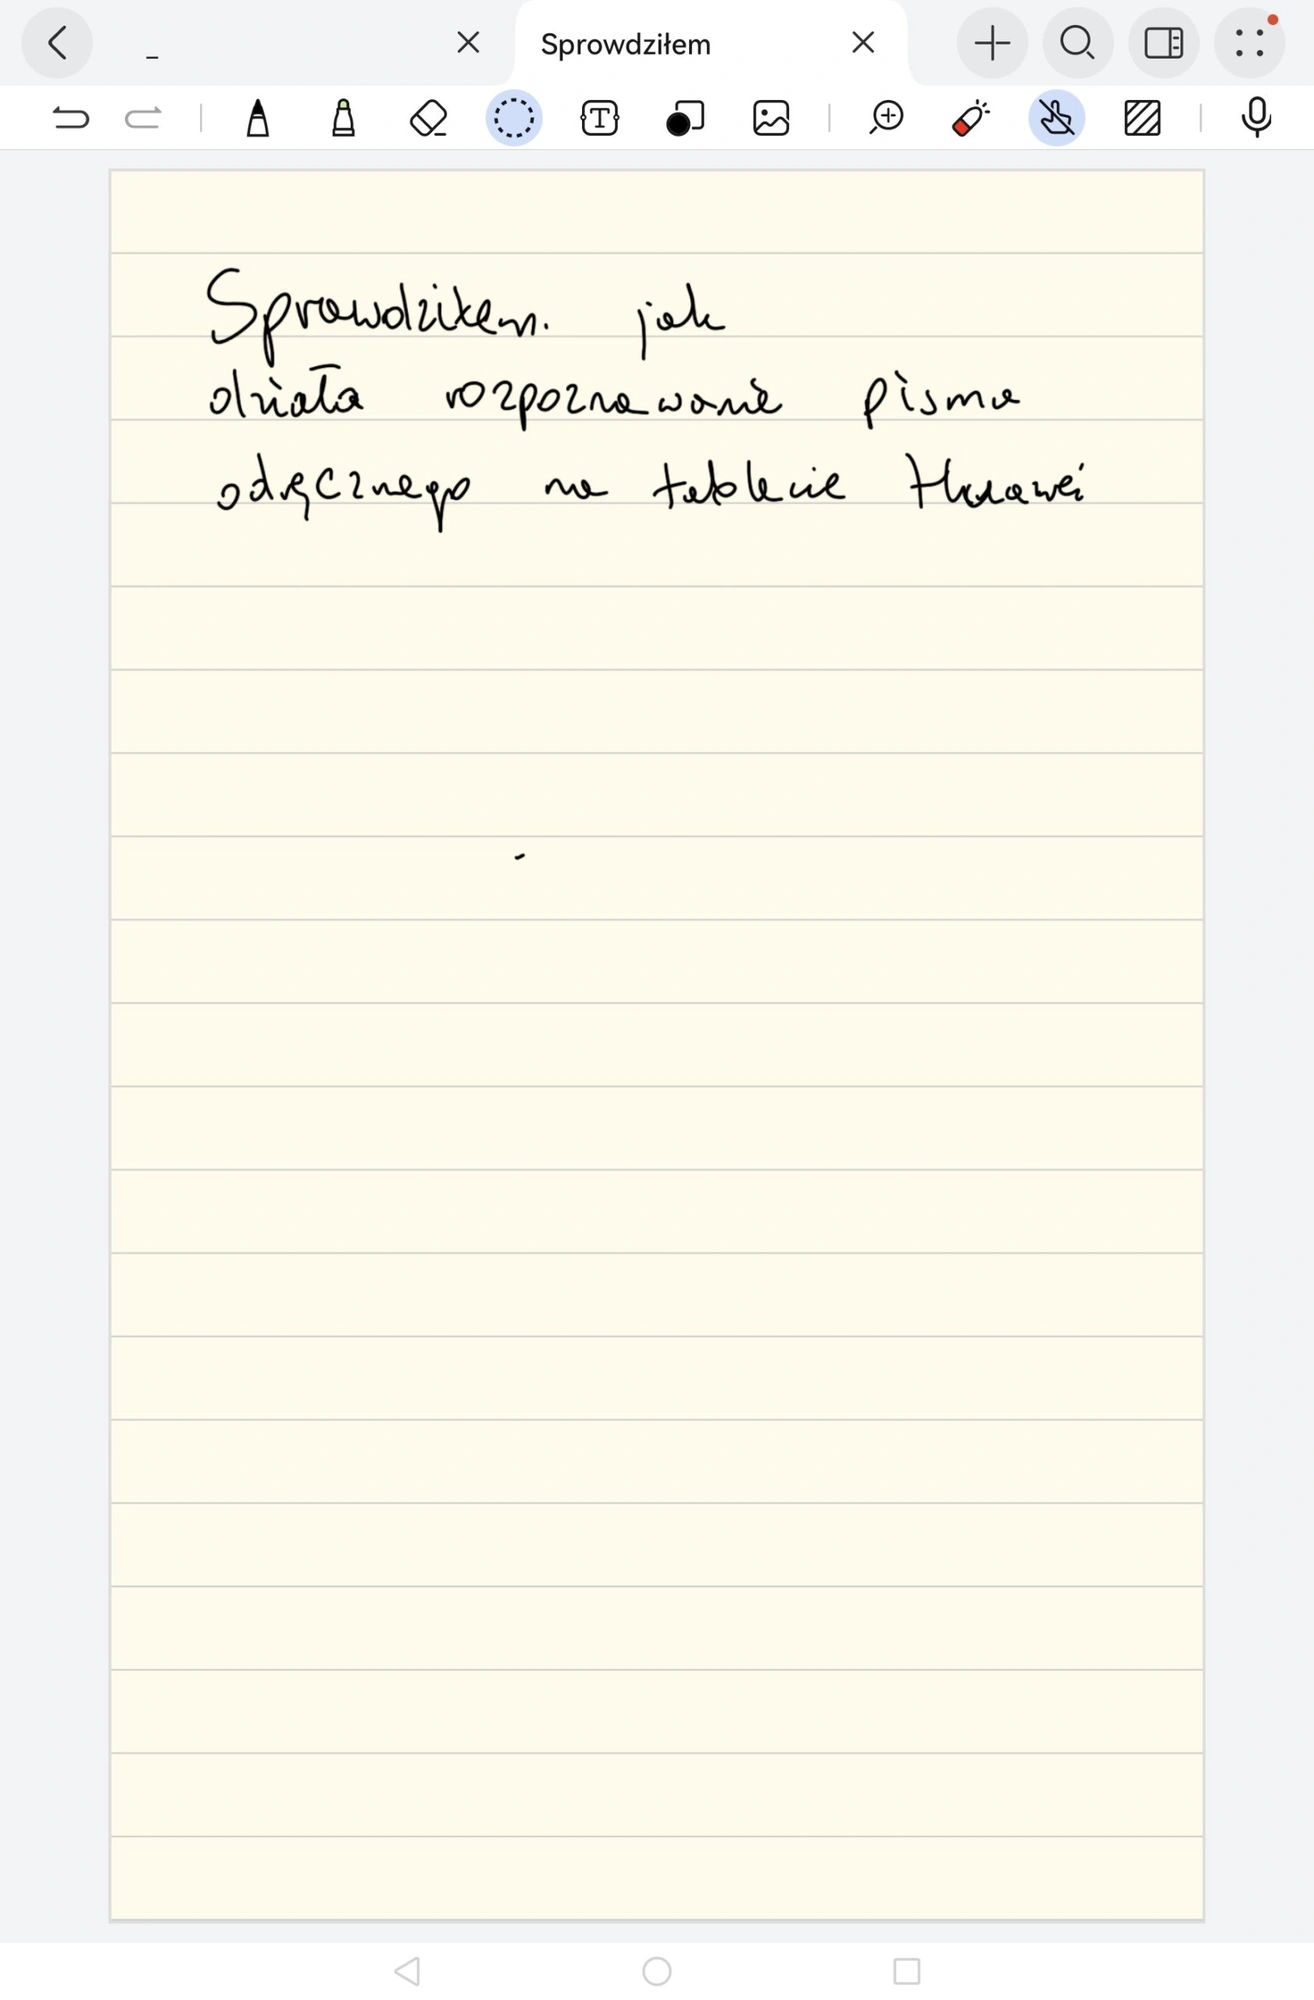 _
Sprowdziłem
Sprawdziłem. jak
działa rozpoznawanie pisma
odręcznego na tablecie Huawei